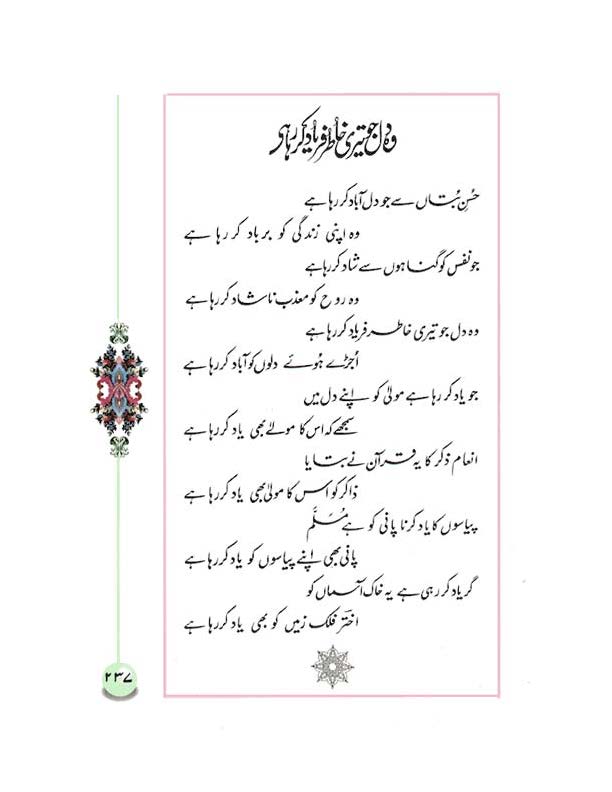 وہ دل جو تیری خاطر فریاد کر رہا ہے
حُسنِ بُتاں سے جو دل آباد کر رہا ہے
وہ اپنی زندگی کو برباد کر رہا ہے
جو نفس کو گناہوں سے شاد کر رہا ہے
وہ روح کو معذب ناشاد کر رہا ہے
وہ دل جو تیری خاطر فریاد کر رہا ہے
اُجڑے ہُوئے دلوں کو آباد کر رہا ہے
جو یاد کر رہا ہے مولیٰ کو اپنے دل میں
سمجھے کہ اس کا مولےٰ بھی یاد کر رہا ہے
انعام ذکر کا یہ قرآن نے بتایا
ذاکر کو اس کا مولیٰ بھی یاد کر رہا ہے
پیاسوں کا یاد کرنا پانی کو ہے مُسَلَّم
پانی بھی اپنے پیاسوں کو یاد کر رہا ہے
گر یاد کر رہی ہے یہ خاک آسماں کو
اخترؔ فلک زمیں کو بھی یاد کر رہا ہے
۲۳۷